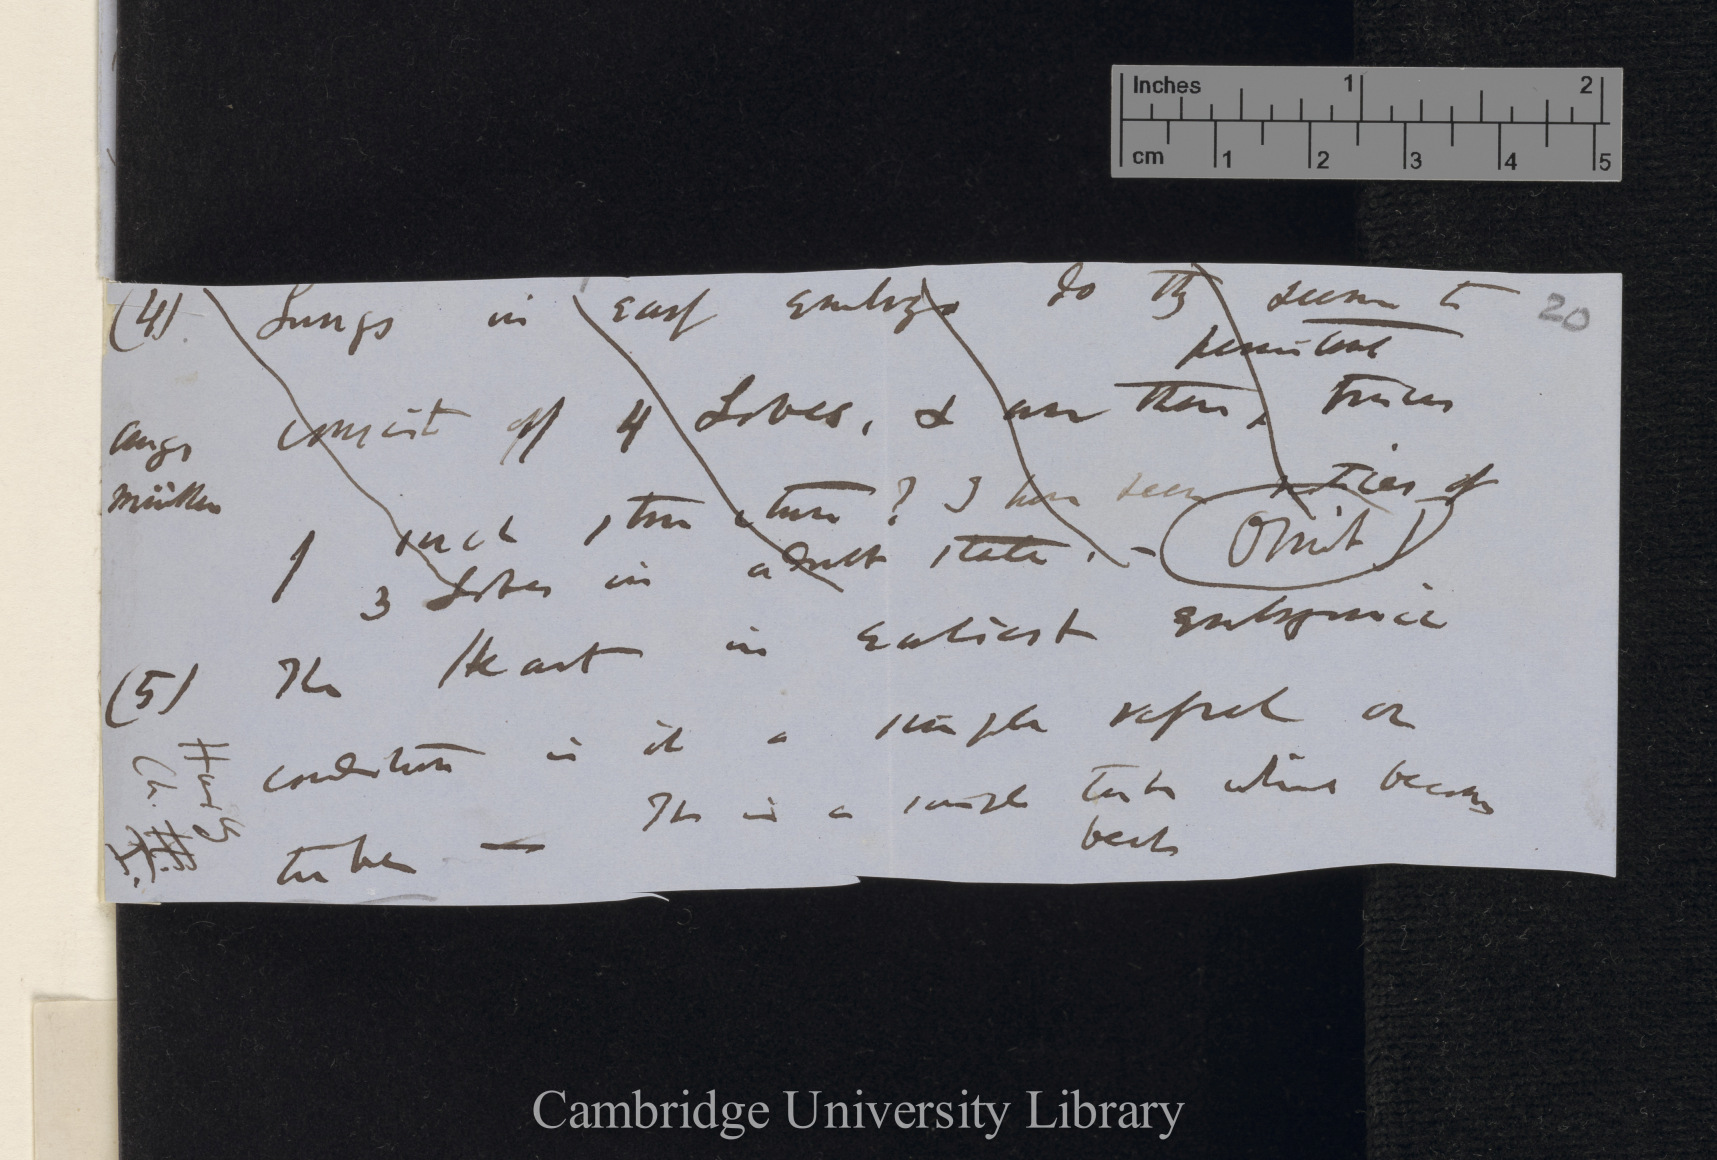 Inches 1 2
cm 1 2 3 4 5
20
(4) Lungs in early embryo do they seem to
persistent
consist of 4 Lobes, & are there, traces
of such structure? I have seen notices of
3 Lobes in adult state. — Omit
(5) The Heart in earliest embryonic
condition is it a simple vessel or
tube — The is a simple tube which becomes
beats
Cambridge University Library